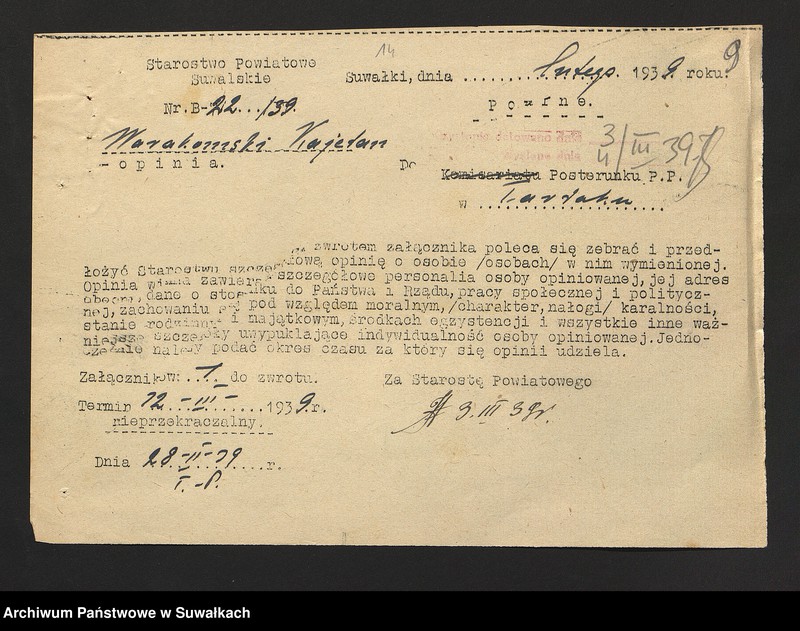 14
9
Starostwo Powiatowe
Suwalskie
Suwałki, dnia ........ lutego. 1939. roku.
Nr. B-22.../39.
Poufne.
Warakomski Kajetan
- opinia.
3/III 39
4
Do
Komisariatu Posterunku P.P.
w ....................
zwrotem załącznika poleca się zebrać i przed-
łożyć Starostwu szczegółową opinię o osobie /osobach/ w nim wymienionej.
Opinia winna zawierać szczegółowe personalia osoby opiniowanej, jej adres
obecny, dane o stosunku do Państwa i Rządu, pracy społecznej i politycz-
nej, zachowaniu się pod względem moralnym, /charakter, nałogi/ karalności,
stanie rodzinnym i majątkowym, środkach egzystencji i wszystkie inne waż-
niejsze szczegóły uwypuklające indywidualność osoby opiniowanej. Jedno-
cześnie należy podać okres czasu za który się opinii udziela.
Załączników: ..1.. do zwrotu.
Za Starostę Powiatowego
Termin 12.-III-....1939.r.
nieprzekraczalny.
3.III 39r.
Dnia 28-II-39......r.
Archiwum Państwowe w Suwałkach